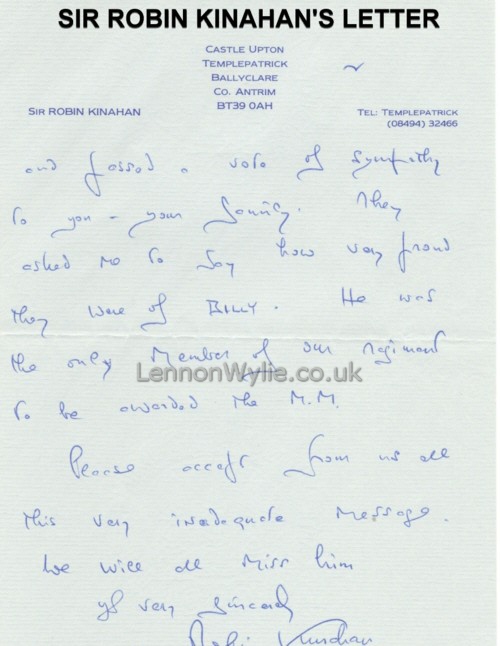 SIR ROBIN KINAHAN'S LETTER
CASTLE UPTON
TEMPLEPATRICK
BALLYCLARE
CO. ANTRIM
BT39 0AH
SIR ROBIN KINAHAN
TEL: TEMPLEPATRICK
(08494) 32466
and passed a vote of sympathy
to you - your family. They
asked me to say how very proud
they were of BILLY. He was
the only member of our regiment
LennonWylie.co.uk
to be awarded the M.M.
Please accept from us all
this very inadequate message.
We will all miss him
yrs very sincerely
Robin Kinahan